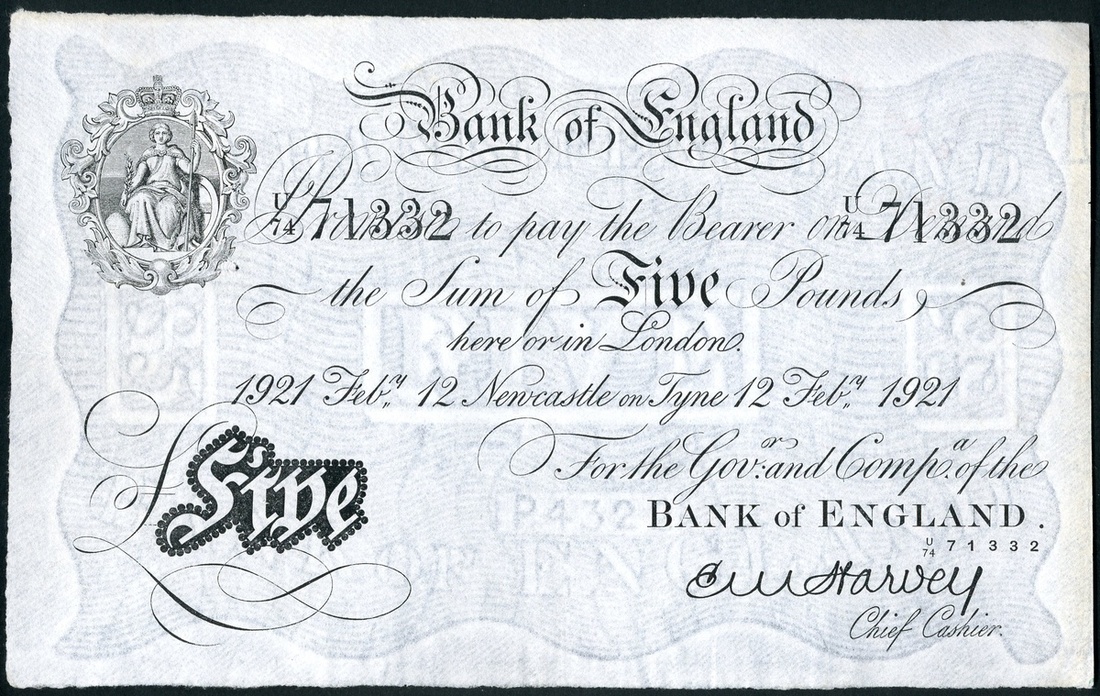 Bank of England
I Promise to pay the Bearer on Demand
U/74 71332 U/74 71332
the Sum of Five Pounds
here or in London.
1921 Feb.ry 12 Newcastle on Tyne 12 Feb.ry 1921
For the Gov.r and Comp.a of the
BANK of ENGLAND.
U/74 71332
Five
E M Harvey
Chief Cashier.